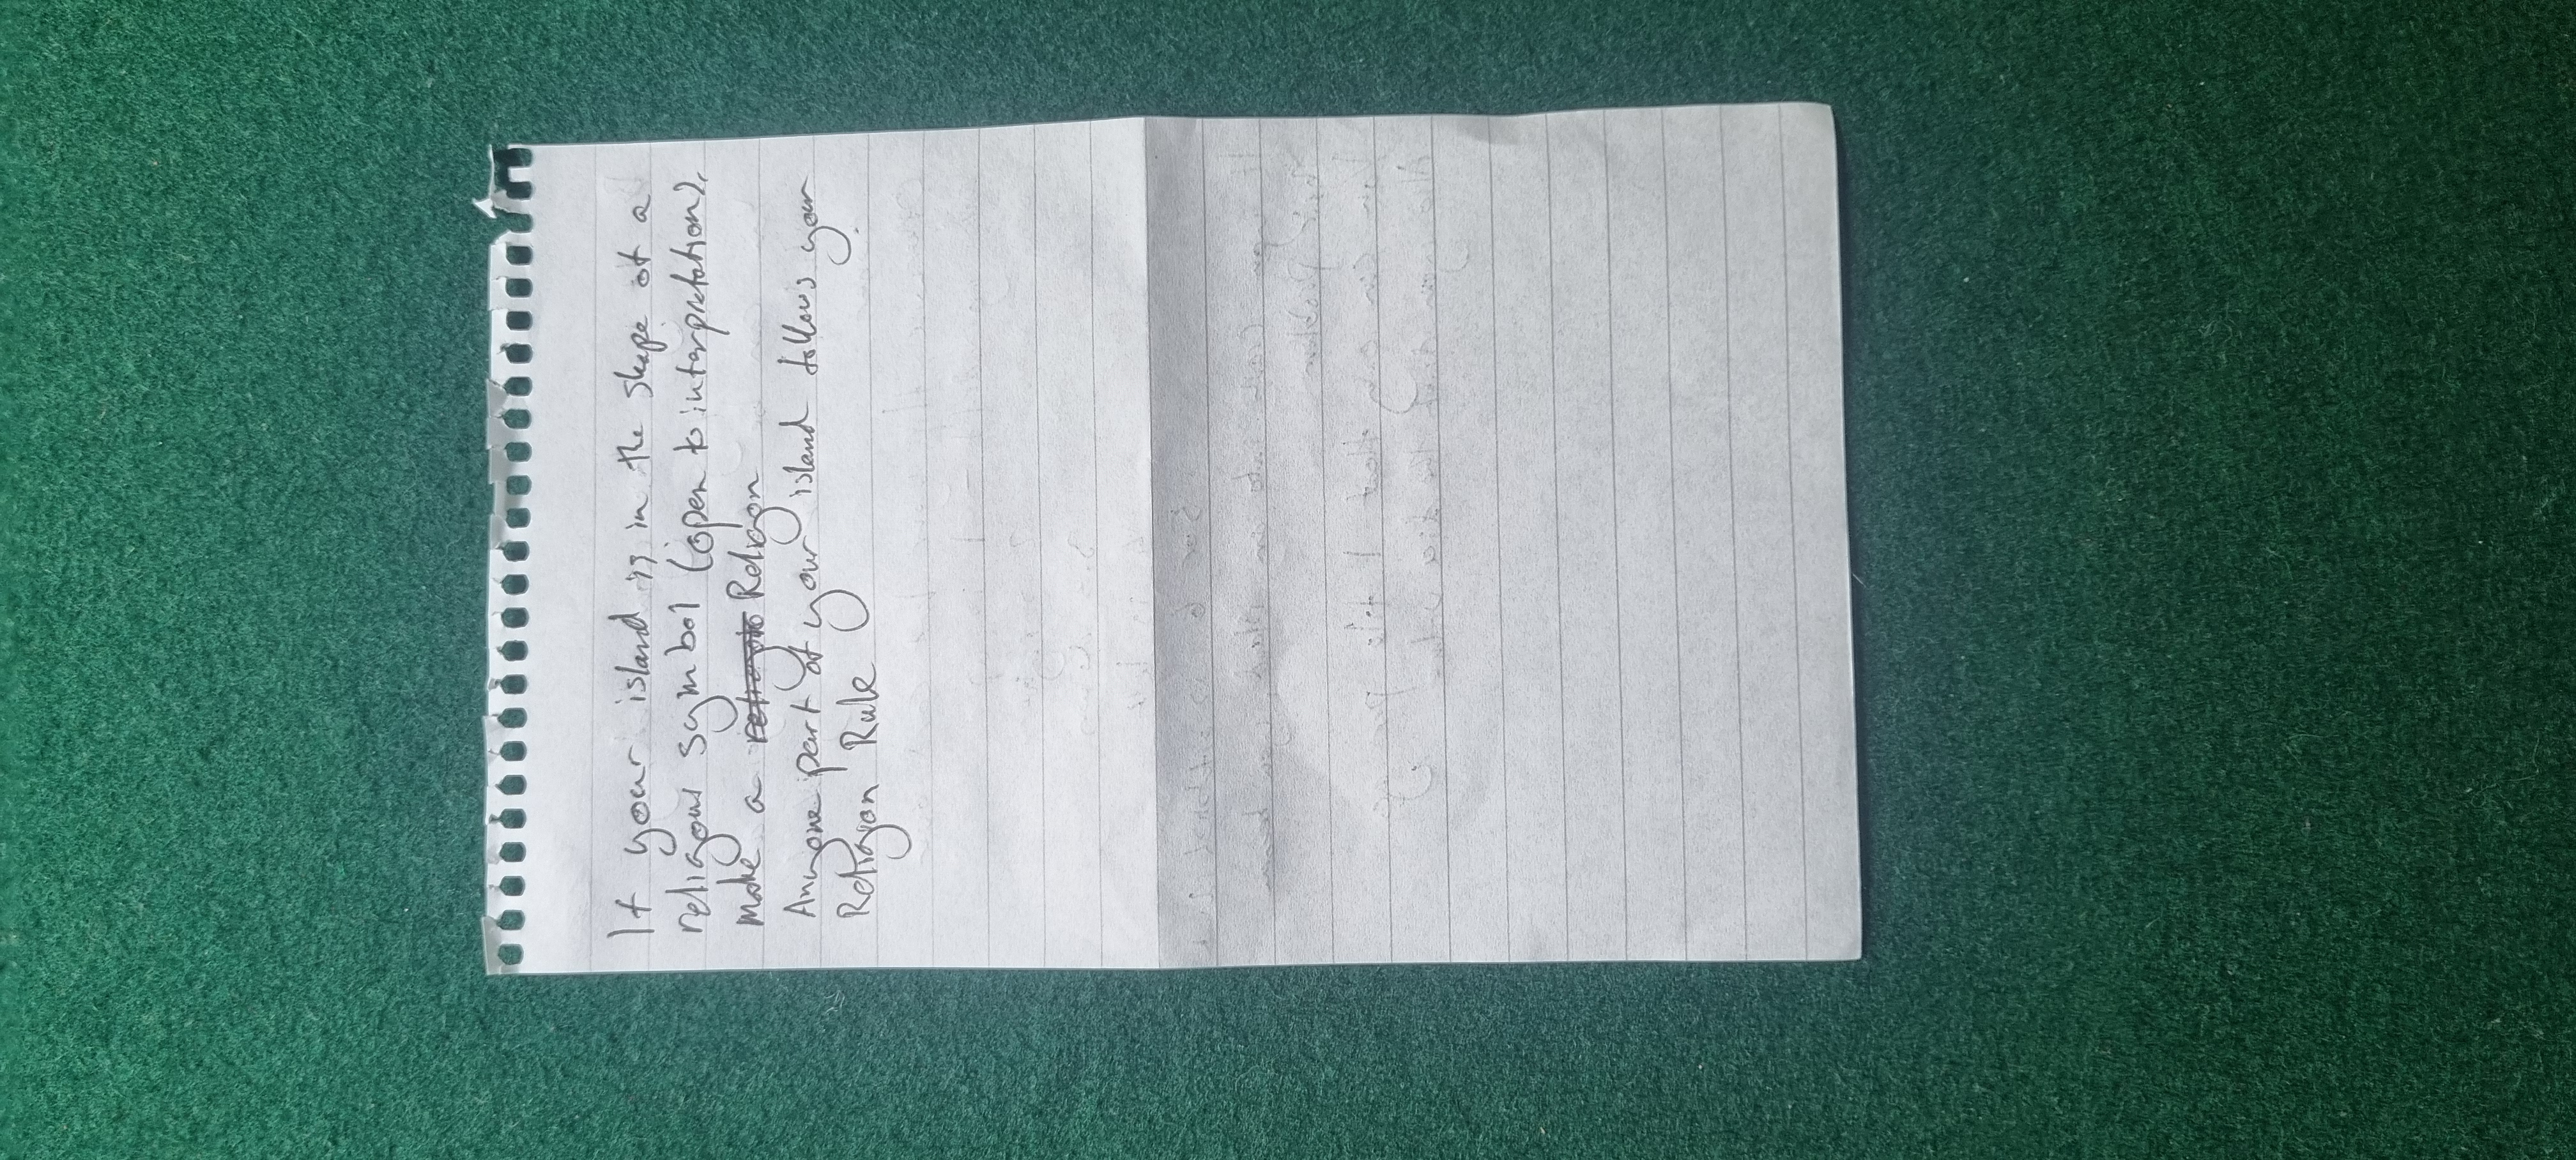 If your island is in the shape of a
religous symbol (open to interpretation),
make a religon Religon
Anyone part of your island follows your
Religon Rule